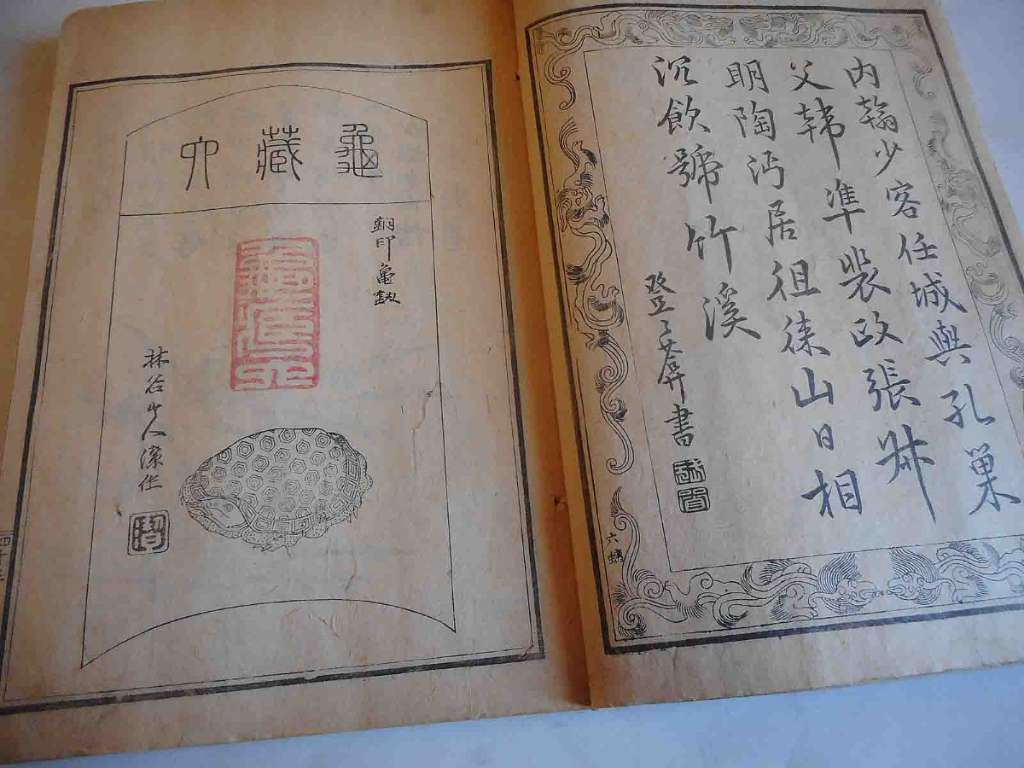 内翰少客任城與孔巢
父韓凖裴政張叔
明陶沔居徂徠山日相
沉飲號竹溪
書
龜藏六
銅印龜鈕
龜藏六
林谷山人